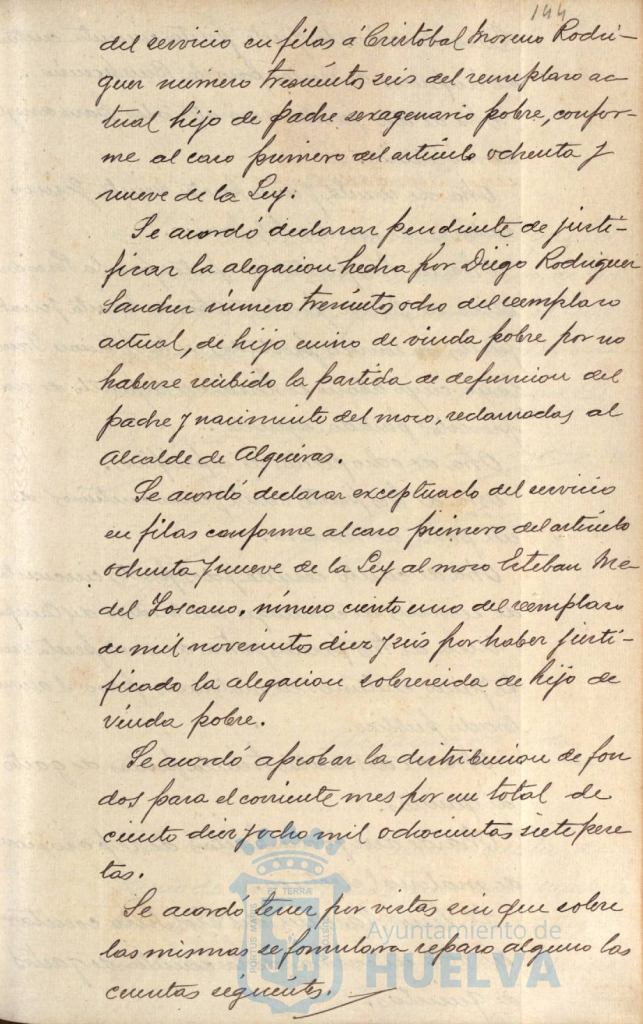 144
del servicio en filas á Cristobal Moreno Rodri-
guez número trescientos seis del remplazo ac
tual hijo de padre sexagenario pobre, confor-
me al caso primero del artículo ochenta y
nueve de la Ley.
Se acordó declarar pendiente de justi-
ficar la alegacion hecha por Diego Rodriguez
Sanchez número trescientos ocho del reemplazo
actual, de hijo unico de viuda pobre por no
haberse recibido la partida de defuncion del
padre y nacimiento del mozo, reclamadas al
Alcalde de Algeciras.
Se acordó declarar exceptuado del servicio
en filas conforme al caso primero del artículo
ochenta y nueve de la Ley al mozo Esteban Me
del Toscano, número ciento uno del reemplazo
de mil novecientos diez y seis por haber justi-
ficado la alegacion sobrevenida de hijo de
viuda pobre.
Se acordó aprobar la distribucion de fon
dos para el corriente mes por un total de
ciento diez y ocho mil ochocientas siete pese
tas.
Se acordó tener por vistas sin que sobre
las mismas se formulara reparo alguno las
cuentas siguientes.
Ayuntamiento de
HUELVA